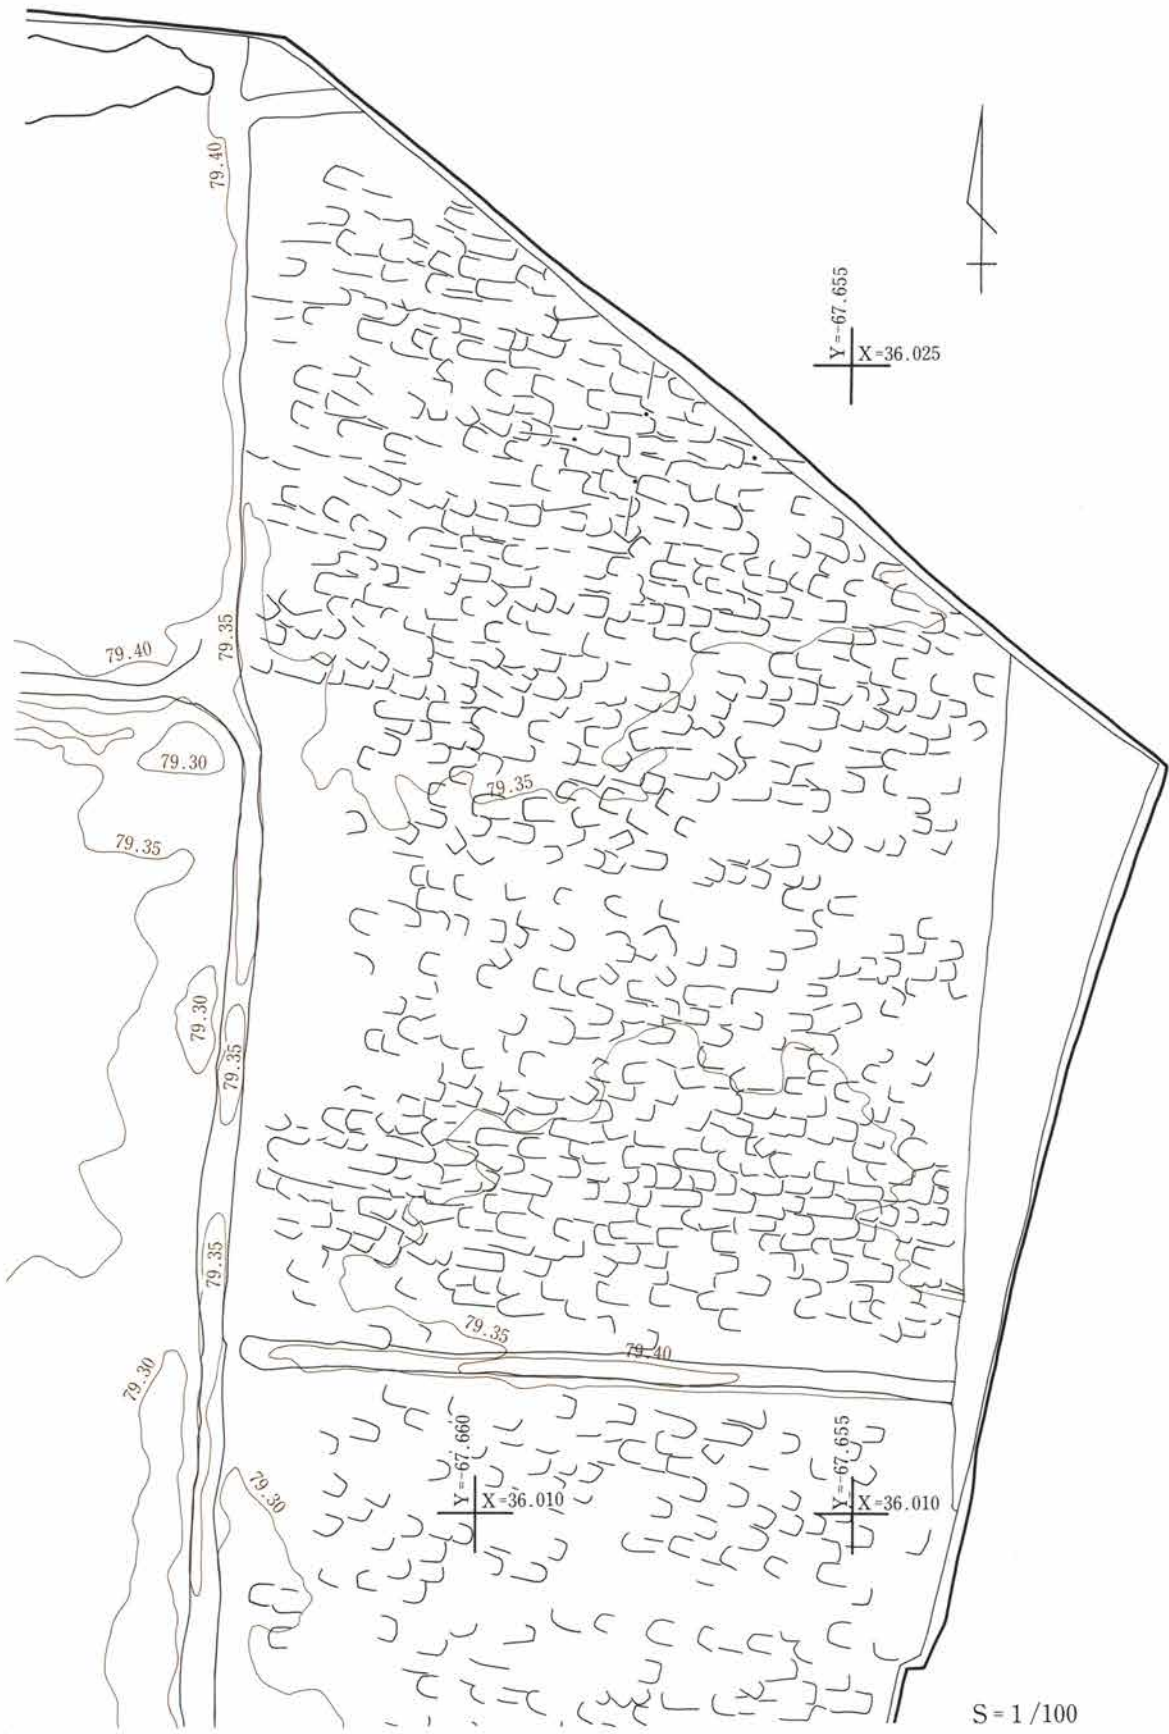 79.40
Y=-67.655
X=36.025
79.35
79.40
79.30
79.35
79.35
79.30
79.35
79.35
79.35
79.40
79.30
Y=-67.660
X=36.010
Y=-67.655
X=36.010
79.30
S=1/100